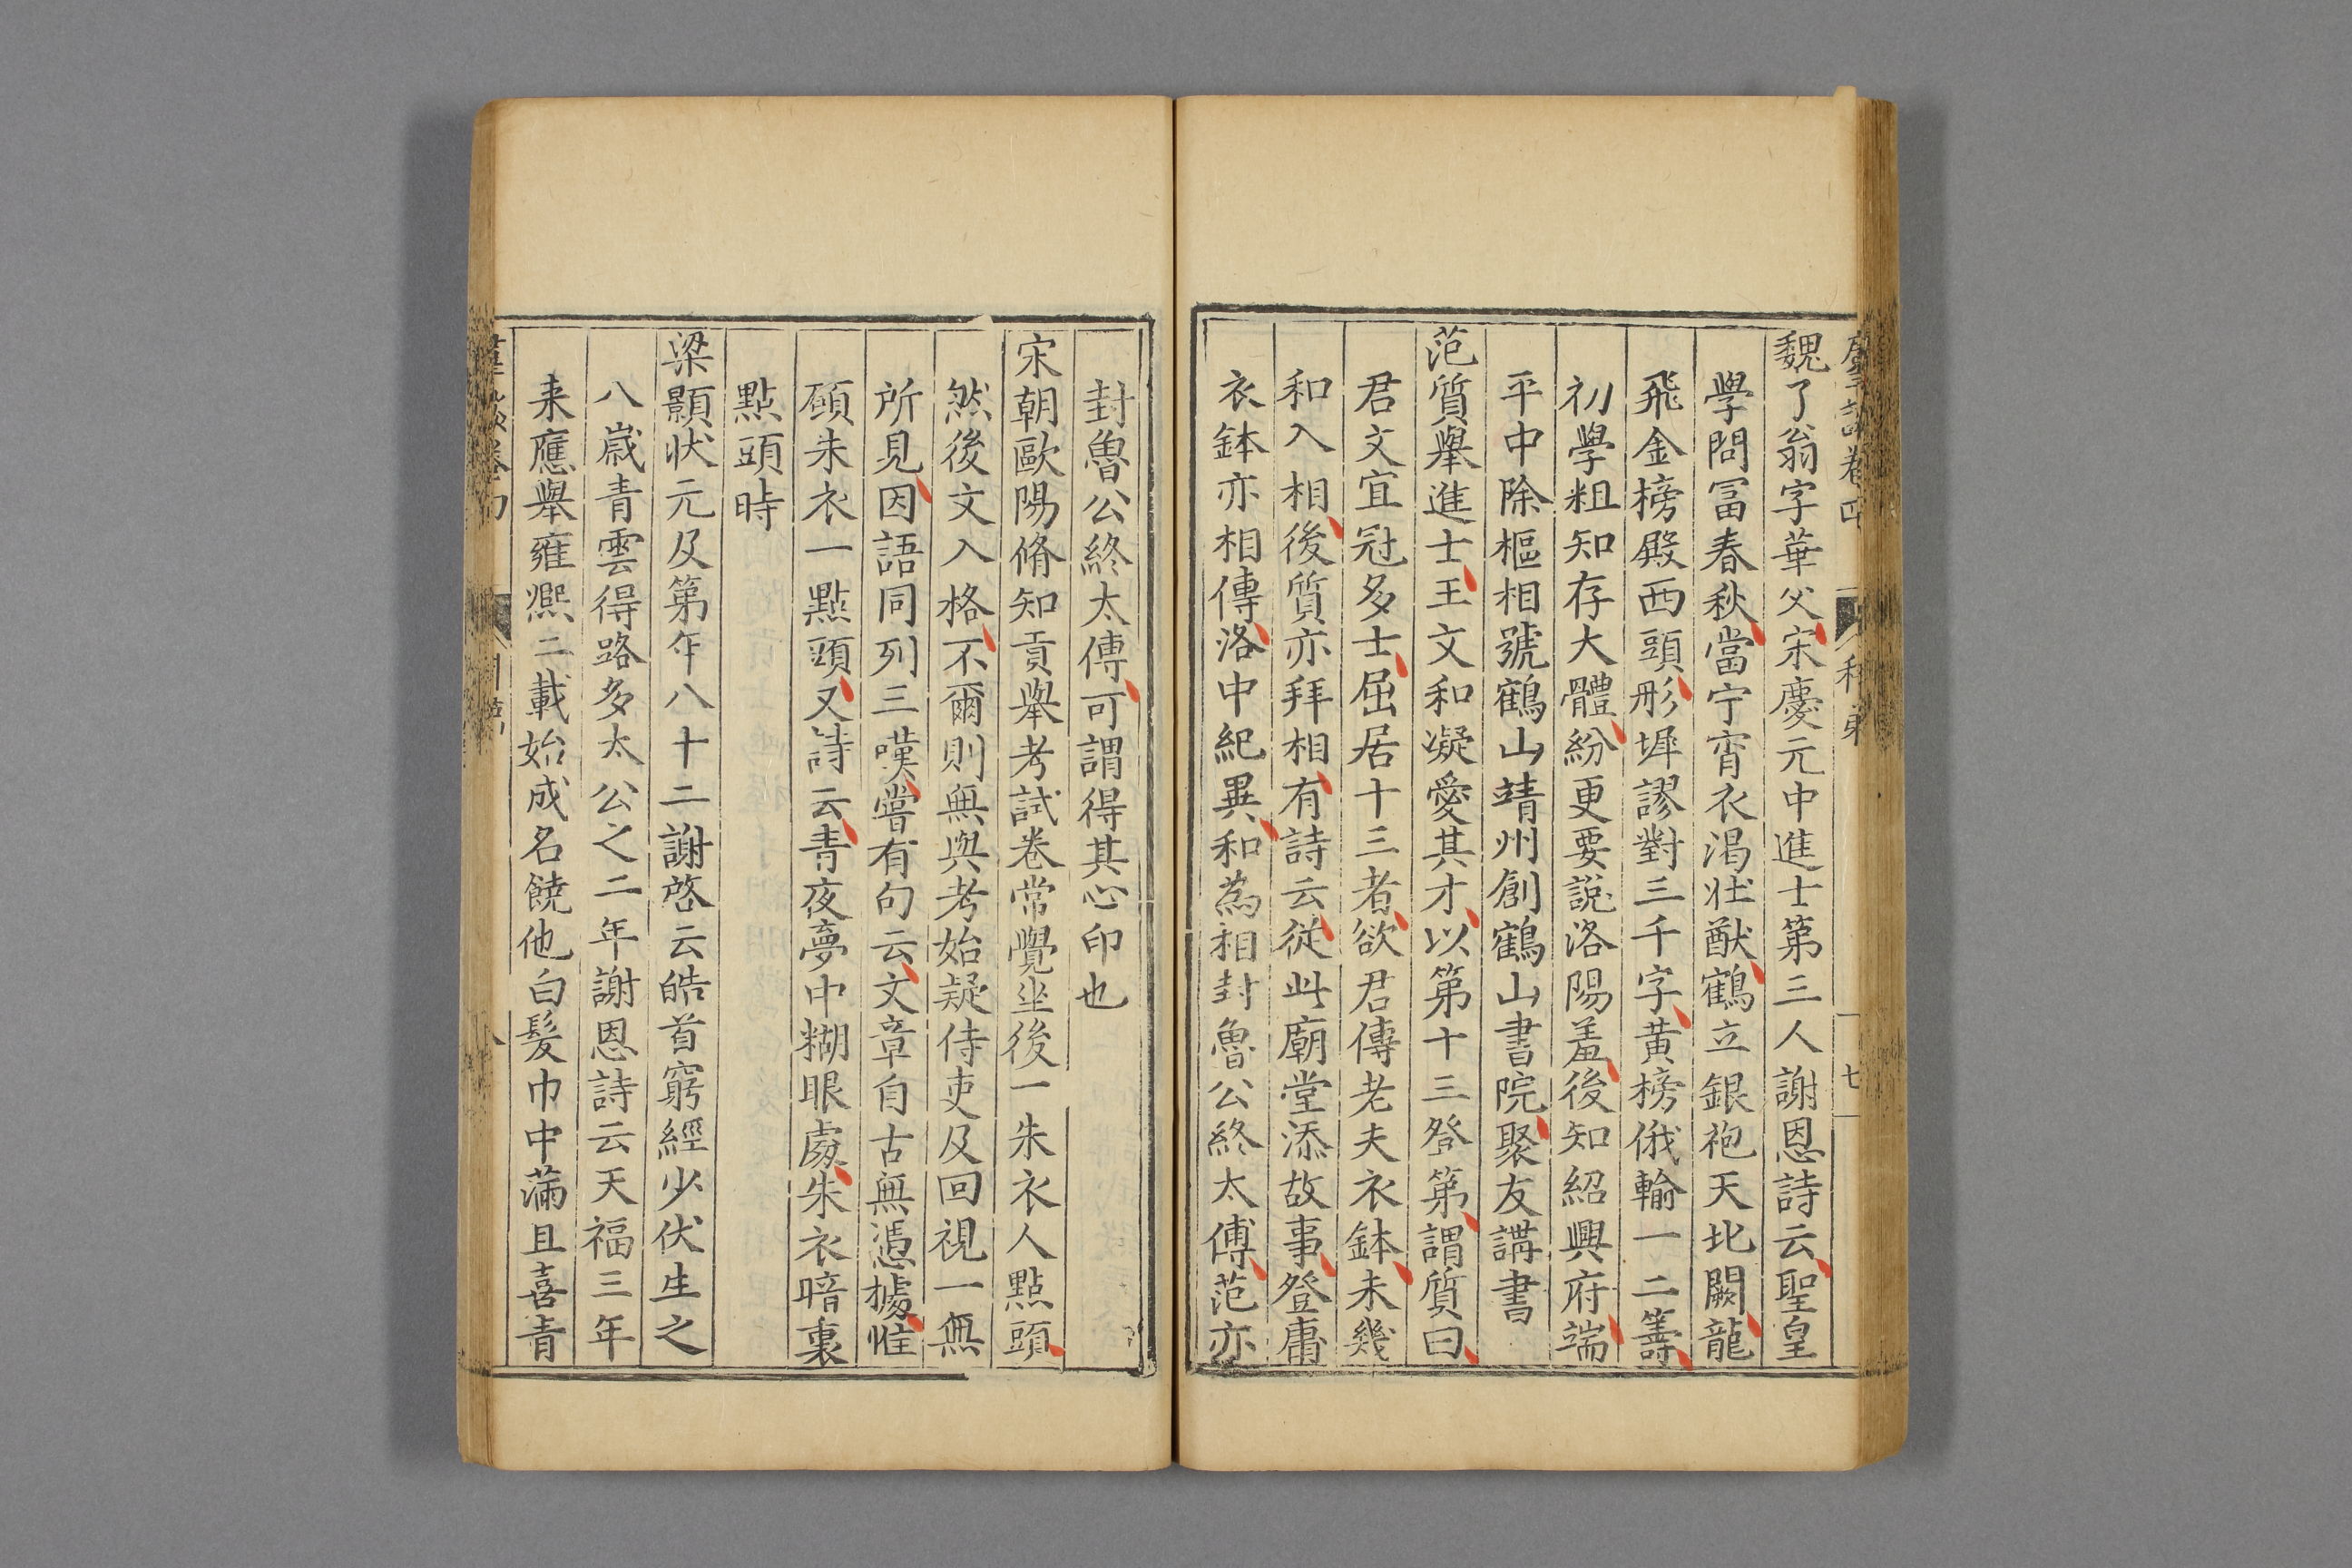 魏了翁字華父宋慶元中進士第三人謝恩詩云聖皇
學問冨春秋當宁宵衣渴壯猷鶴立銀袍天北闕龍
飛金榜殿西頭彤墀謬對三千字黃榜俄輸一二籌
初學粗知存大體紛更要說洛陽羞後知紹興府端
平中除樞相號鶴山靖州創鶴山書院聚友講書
范質舉進士王文和凝愛其才以第十三登第謂質曰
君文宜冠多士屈居十三者欲君傳老夫衣鉢未幾
和入相後質亦拜相有詩云従此廟堂添故事登庸
衣鉢亦相傳洛中紀異和為相封魯公終太傅范亦
封魯公終太傅可謂得其心印也
宋朝歐陽脩知貢舉考試卷常覺坐後一朱衣人點頭
然後文入格不爾則無與考始疑侍吏及回視一無
所見因語同列三嘆嘗有句云文章自古無憑據惟
願朱衣一點頭又詩云青夜夢中糊眼處朱衣暗裏
點頭時
梁顥狀元及第年八十二謝啓云皓首窮經少伏生之
八歲青雲得路多太公之二年謝恩詩云天福三年
来應舉雍熙二載始成名饒他白髪巾中滿且喜青